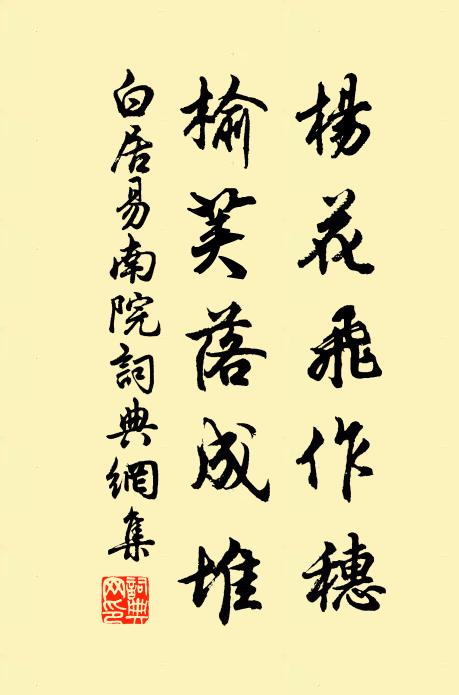 楊花飛作穗
榆莢落成堆
白居易南院詞典網集
詞典网印